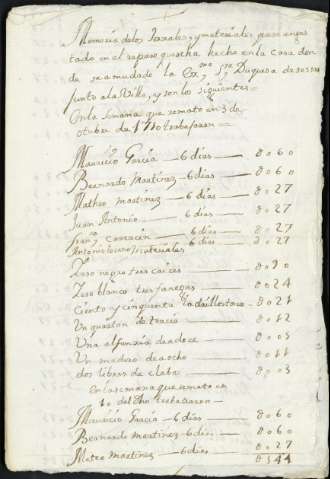 Memoria de los Jornales, y materiales que se an gas
tado en el reparo que se ha hecho en la Casa don
de se a mudado la Ex.ma S.ra Duquesa de
junto a la Villa, y son los siguientes
En la semana que remato en 3 de
otubre de 1710 trabajaron
Mauricio Garcia — 6 dias — 8060
Bernardo Martinez — 6 dias — 8060
Matheo martinez — 6 dias — 8027
Juan Antonio — 6 dias — 8027
Fran.co — 6 dias — 8027
Antonio — 6 dias — 8027
materiales
Yeso negro tres caices — 8090
Yeso blanco tres fanegas — 8024
Ciento y cinquenta ladrillos — 8021
Un quarton de — 8012
Una alfanxia de adoce — 8005
Un madero de aocho — 8011
dos libras de clabo — 8003
En la semana que remato en
10 del dho trabajaron
Mauricio Garcia — 6 dias — 8060
Bernardo martinez — 6 dias — 8060
Mateo Martinez — 6 dias — 8027
8544